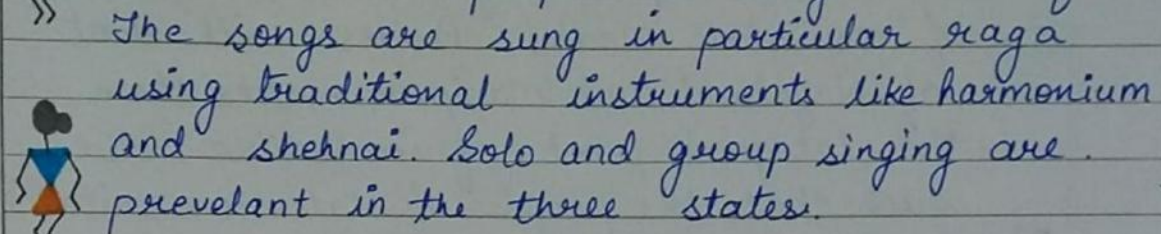 >> The songs are sung in particular raga
using traditional instruments like harmonium
and shehnai. Solo and group singing are.
prevelant in the three states.